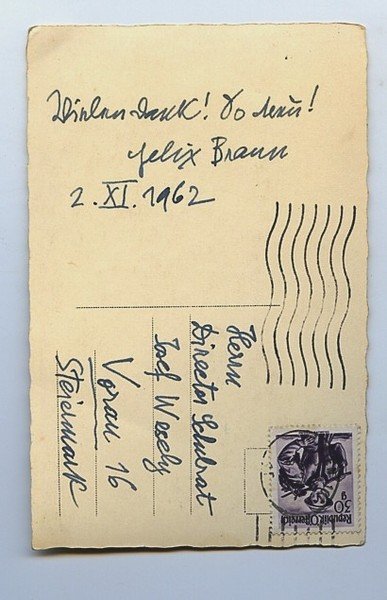 Vielen Dank!
Felix Braun
2. XI. 1962
Herrn
Director Schulrat
Josef
Vorau 16
Steiermark
30 g
Republik Österreich